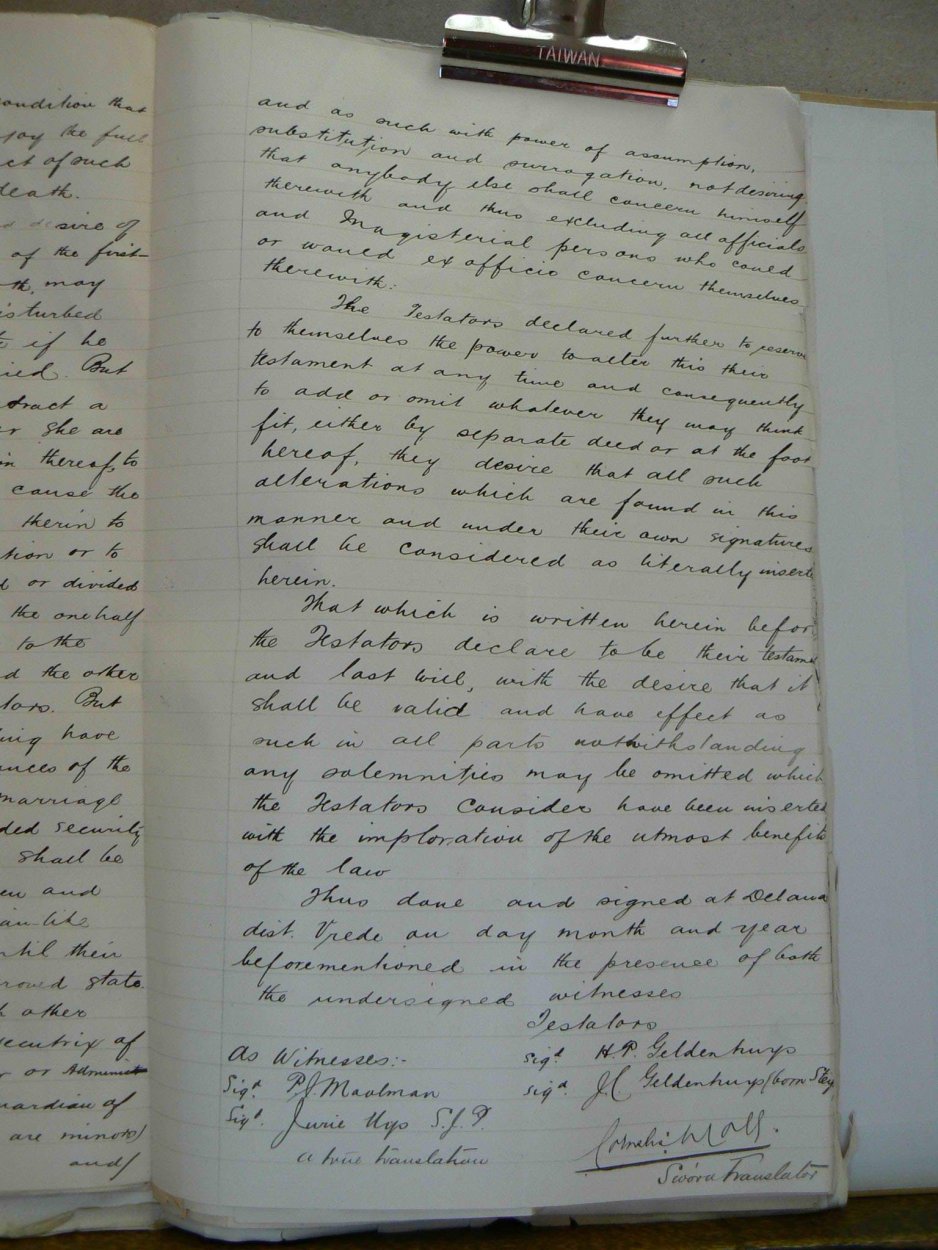 TAIWAN
condition that
joy the full
ct of such
death.
desire of
of the first-
th, may
isturbed
if he
ied. But
tract a
r she are
in thereof, to
cause the
therin to
tion or to
d or divided
the one half
to the
d the other
tors. But
ing have
ances of the
marriage
ded security
shall be
en and
an like
ntil their
roved state
h other
ecutrix of
r or Administ
uardian of
are minors)
and/
and as such with power of assumption,
substitution and surrogation, not desiring
that anybody else shall concern himself
therewith and thus excluding all officials
and Magisterial persons who could
or would ex officio concern themselves
therewith:
The Testators declared further to reserve
to themselves the power to alter this their
testament at any time and consequently
to add or omit whatever they may think
fit, either by separate deed or at the foot
hereof, they desire that all such
alterations which are found in this
manner and under their own signatures
shall be considered as literally insert
herein.
That which is written herein befor
the Testators declare to be their testame
and last will, with the desire that it
shall be valid and have effect as
such in all parts notwithstanding
any solemnities may be omitted which
the Testators consider have been inserted
with the imploration of the utmost benefits
of the law
Thus done and signed at Delawa
dist. Vrede on day month and year
beforementioned in the presence of both
the undersigned witnesses
Testators
As Witnesses:- sigd H.P. Geldenhuys
Sigd P.J. Maalman sigd J.C. Geldenhuys (born Stey
Sigd Jurie Uys S.J.P.
a true translation Cornelis Moll.
Sworn Translator